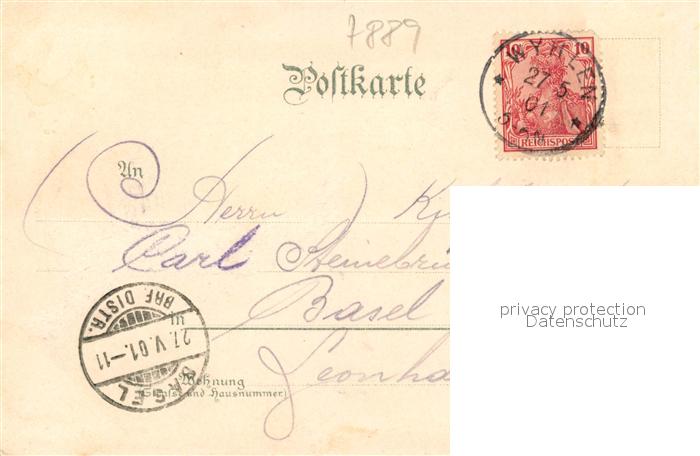 7889
Postkarte
10 10
REICHSPOST
* WYHLEN *
27 5
01
5-6N
An
Herrn
Carl Steinebrü
in Basel
Leonha
Wohnung
(Straße und Hausnummer)
BASEL
27.V.01.-11
BRF. DISTR.
privacy protection
Datenschutz